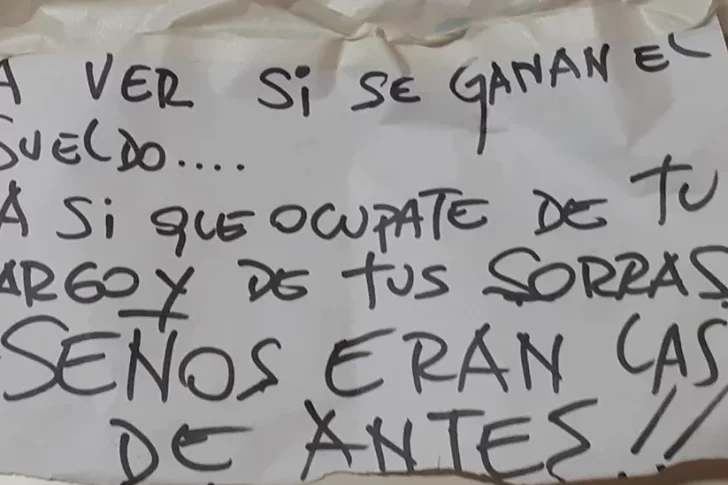 A VER Si SE GANAN EL
SUELDO....
A Si QUE OCUPATE DE TU
ARGO Y DE tUS SORRAS
SEÑOS ERAN LAS
DE ANTES!!